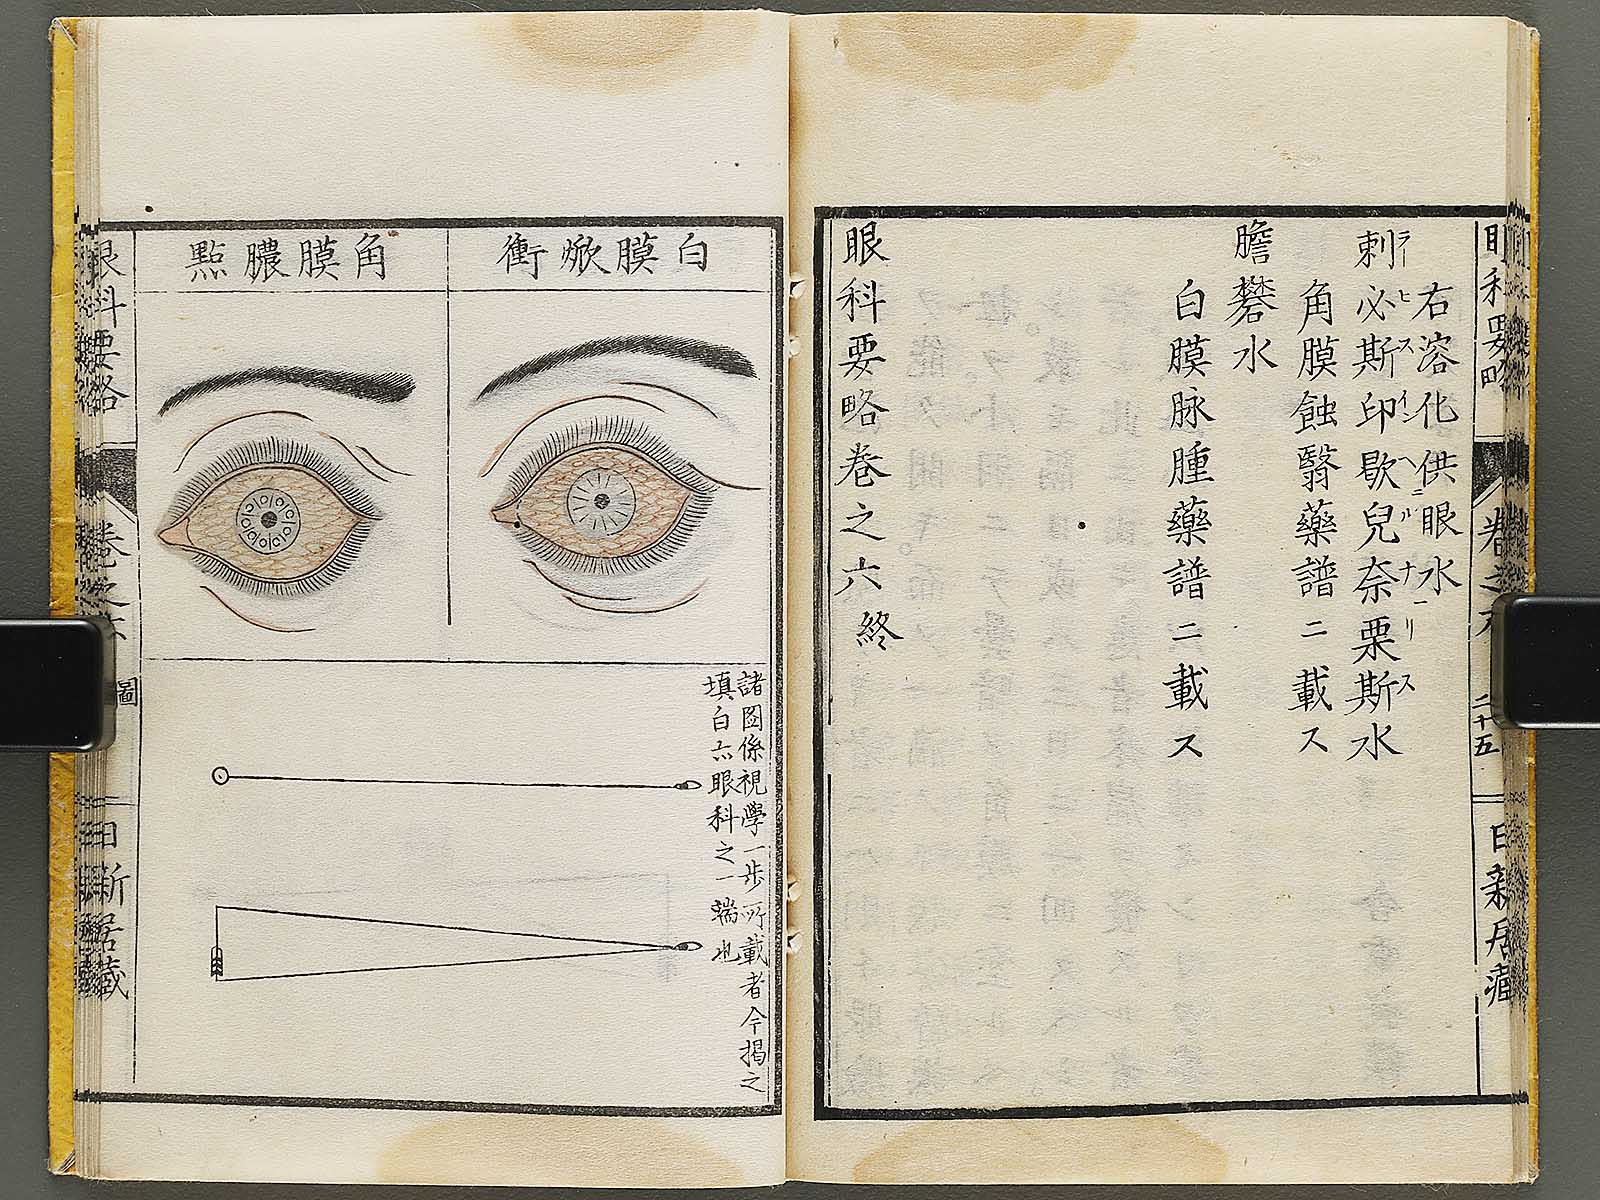 眼科要略
卷之六
二十五
日新居藏
右溶化供眼水
刺必斯印歇兒奈栗斯水
ラーヒスインヘニルナーリス
角膜蝕翳藥譜ニ載ス
膽礬水
白膜脉腫藥譜ニ載ス
眼科要略卷之六終
白膜焮衝
角膜膿點
諸圖係視學一步所載者今揭之
填白亦眼科之一端也
眼科要略
卷之六
圖
日新居藏